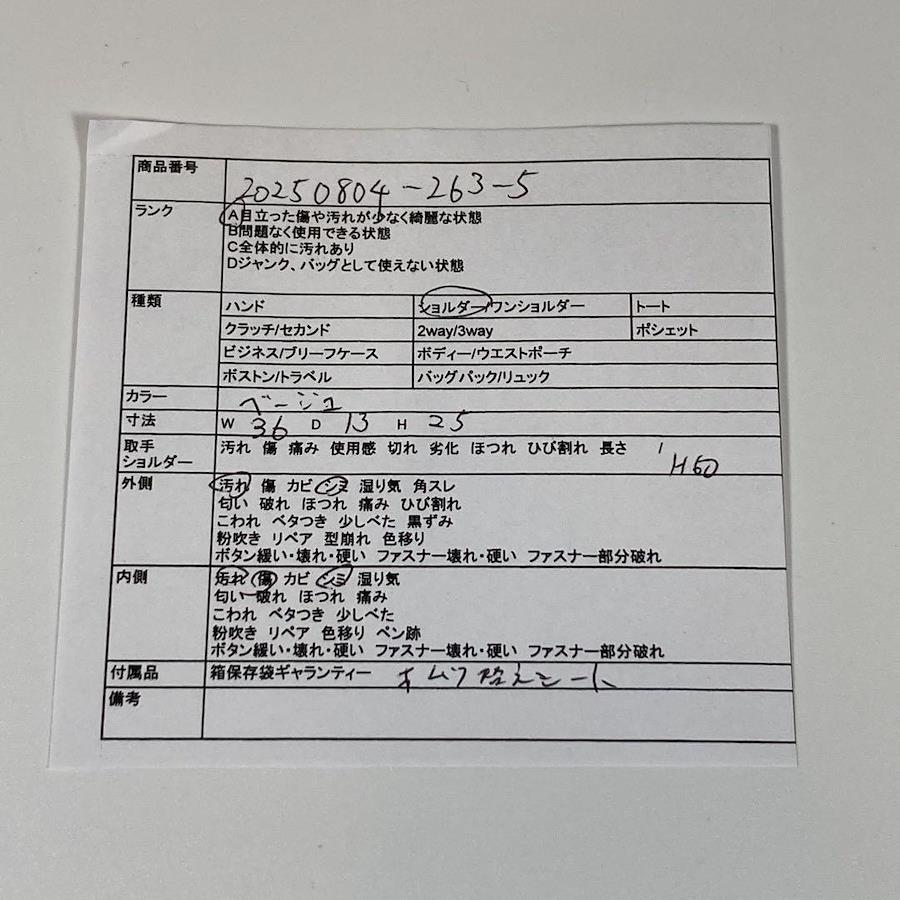 商品番号 20250804-263-5
ランク A目立った傷や汚れが少なく綺麗な状態
B問題なく使用できる状態
C全体的に汚れあり
Dジャンク、バッグとして使えない状態
種類 ハンド ショルダー/ワンショルダー トート
クラッチ/セカンド 2way/3way ポシェット
ビジネス/ブリーフケース ボディー/ウエストポーチ
ボストン/トラベル バッグパック/リュック
カラー ベージュ
寸法 W 36 D 13 H 25
取手 汚れ 傷 痛み 使用感 切れ 劣化 ほつれ ひび割れ 長さ
ショルダー H50
外側 汚れ 傷 カビ シミ 湿り気 角スレ
匂い 破れ ほつれ 痛み ひび割れ
こわれ ベタつき 少しべた 黒ずみ
粉吹き リペア 型崩れ 色移り
ボタン緩い・壊れ・硬い ファスナー壊れ・硬い ファスナー部分破れ
内側 汚れ 傷 カビ シミ 湿り気
匂い 破れ ほつれ 痛み
こわれ ベタつき 少しべた
粉吹き リペア 色移り ペン跡
ボタン緩い・壊れ・硬い ファスナー壊れ・硬い ファスナー部分破れ
付属品 箱保存袋ギャランティー オムツ替えシート
備考